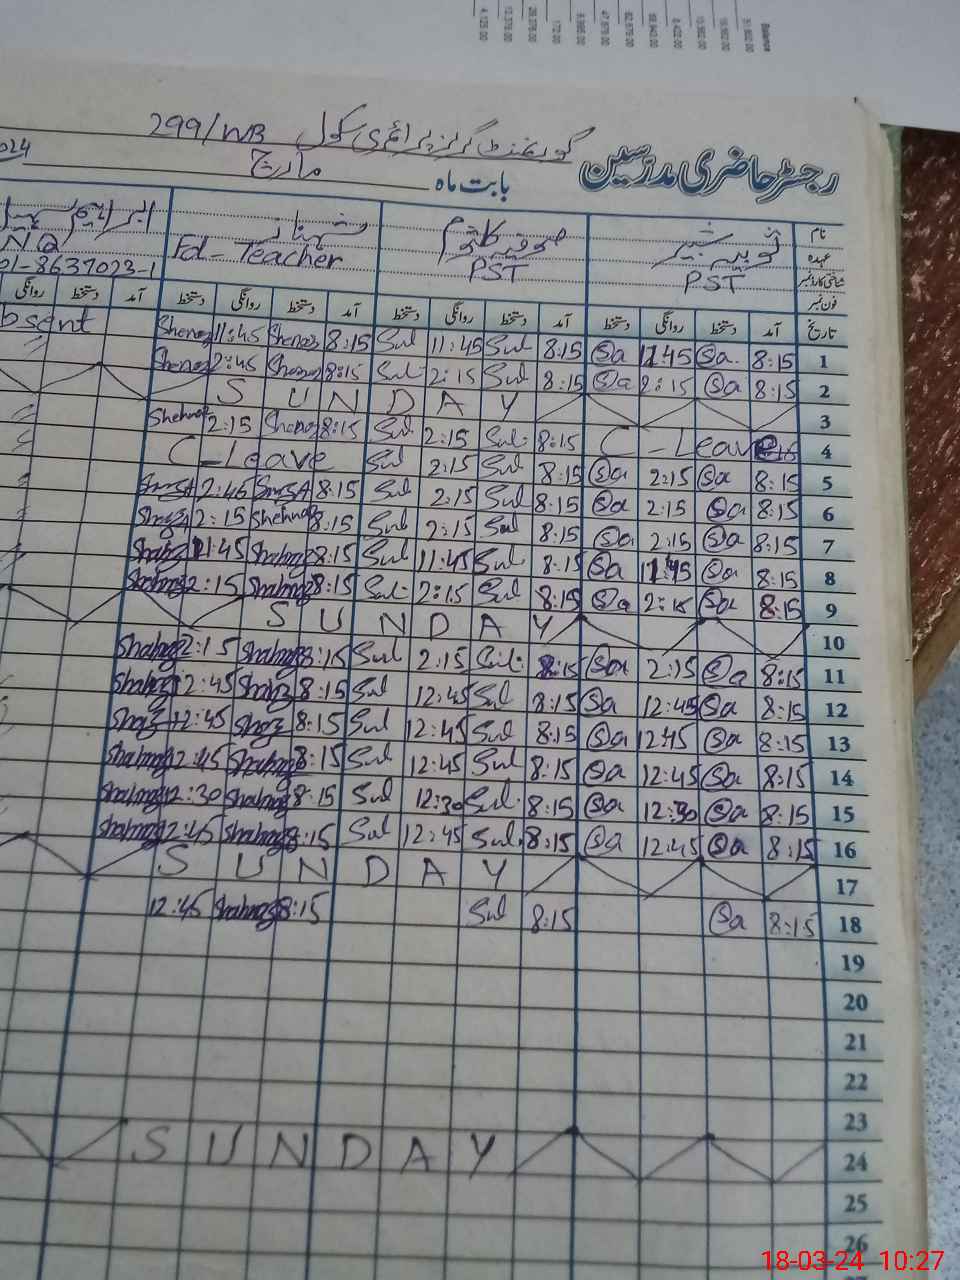 Balance
51,602.00
10,392.00
8,402.00
68,943.00
62,679.00
47,679.00
8,995.00
172.00
26,376.00
12,376.00
4,125.00
رجسٹر حاضری مدرسین گورنمنٹ گرلز پرائمری سکول 299/WB
بابت ماہ مارچ 2024
نام ثوبیہ شبیر صوفیہ کلثوم شہناز
عہدہ PST PST Fd - Teacher N.Q
شناختی کارڈ نمبر
فون نمبر 01-8637023-1
تاریخ آمد دستخط روانگی دستخط آمد دستخط روانگی دستخط آمد دستخط روانگی دستخط آمد دستخط روانگی
1 8:15 Sa 11:45 Sa 8:15 Sul 11:45 Sul 8:15 Shenaz 11:45 Shenaz bsent
2 8:15 Sa 2:15 Sa 8:15 Sul 2:15 Sul 8:15 Shenaz 2:45 Shenaz
3 SUNDAY
4 C-Leave 8:15 Sul 2:15 Sul 8:15 Shenaz 2:15 Shehnaz
5 8:15 Sa 2:15 Sa 8:15 Sul 2:15 Sul C-Leave
6 8:15 Sa 2:15 Sa 8:15 Sul 2:15 Sul 8:15 2:45
7 8:15 Sa 2:15 Sa 8:15 Sul 2:15 Sul 8:15 Shehnaz 2:15
8 8:15 Sa 11:45 Sa 8:15 Sul 11:45 Sul 8:15 Shahnaz 11:45
9 8:15 Sa 2:15 Sa 8:15 Sul 2:15 Sul 8:15 Shahnaz 2:15 Shahnaz
10 SUNDAY
11 8:15 Sa 2:15 Sa 8:15 Sul 2:15 Sul 8:15 Shahnaz 2:15 Shahnaz
12 8:15 Sa 12:45 Sa 8:15 Sul 12:45 Sul 8:15 12:45
13 8:15 Sa 12:45 Sa 8:15 Sul 12:45 Sul 8:15 12:45
14 8:15 Sa 12:45 Sa 8:15 Sul 12:45 Sul 8:15 Shahnaz 12:45 Shahnaz
15 8:15 Sa 12:30 Sa 8:15 Sul 12:30 Sul 8:15 Shahnaz 12:30 Shahnaz
16 8:15 Sa 12:45 Sa 8:15 Sul 12:45 Sul 8:15 Shahnaz 12:45 Shahnaz
17 SUNDAY
18 8:15 Sa 8:15 Sul 8:15 Shahnaz 12:45
19
20
21
22
23
24 SUNDAY
25
26
18-03-24 10:27